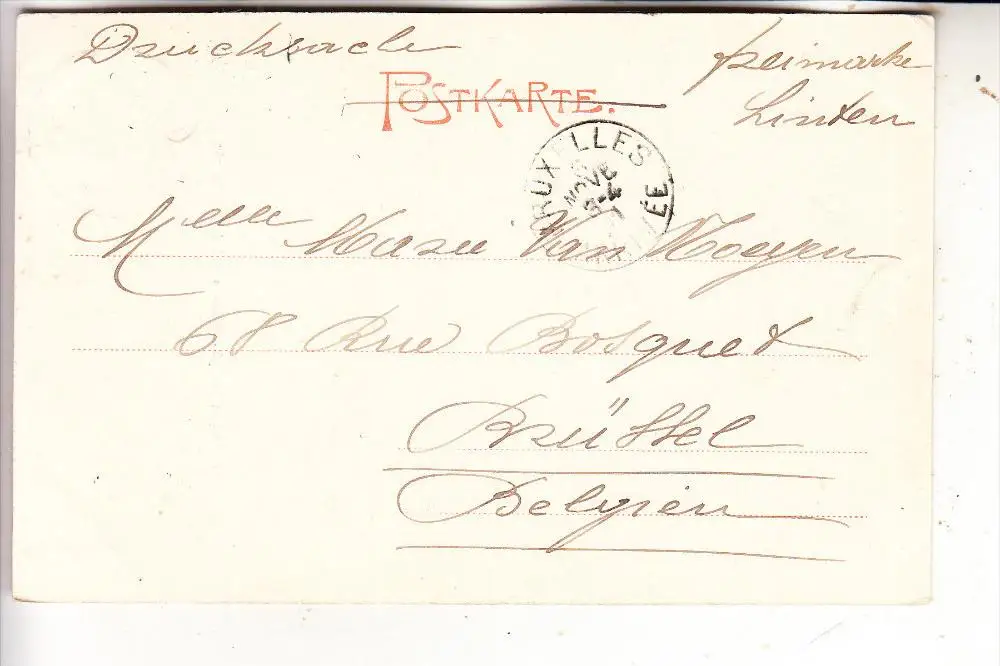 Drucksache
freimarke
hinten
POSTKARTE.
BRUXELLES
NOVE
3-4
Melle Marie Van
68 Rue Bosquet
Brüssel
Belgien